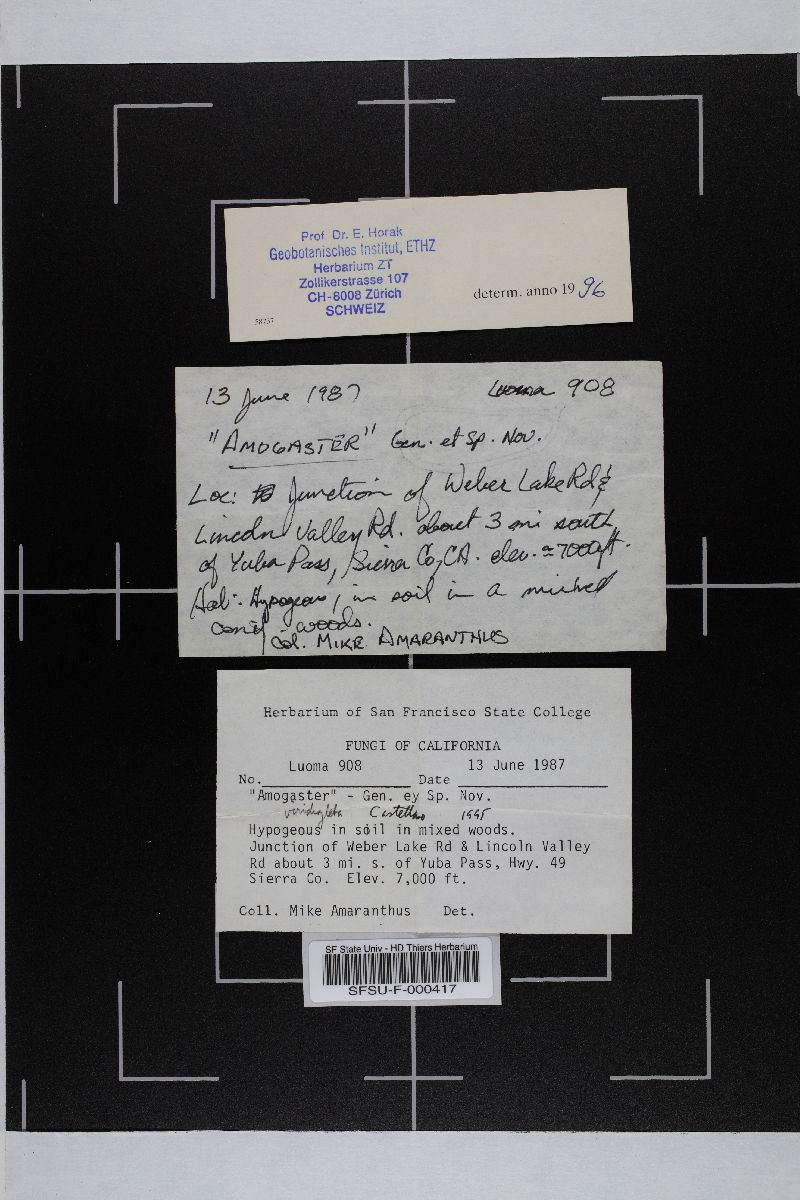 Prof Dr. E. Horak
Geobotanisches Institut, ETHZ
Herbarium ZT
Zollikerstrasse 107
CH-8008 Zürich
SCHWEIZ
58737
determ. anno 19 96
13 June 1987 Luoma 908
"AMOGASTER" Gen. et Sp. Nov.
Loc: Junction of Weber Lake Rd &
Lincoln Valley Rd. about 3 mi south
of Yuba Pass, Sierra Co, CA. elev. ≈ 7000 ft.
Hab: Hypogeous, in soil in a mixed
conif woods.
Col. MIKE AMARANTHUS
Herbarium of San Francisco State College
FUNGI OF CALIFORNIA
No. Luoma 908 Date 13 June 1987
"Amogaster" - Gen. ey Sp. Nov.
viridigleba Castellano 1995
Hypogeous in soil in mixed woods.
Junction of Weber Lake Rd & Lincoln Valley
Rd about 3 mi. s. of Yuba Pass, Hwy. 49
Sierra Co. Elev. 7,000 ft.
Coll. Mike Amaranthus Det.
SF State Univ - HD Thiers Herbarium
SFSU-F-000417